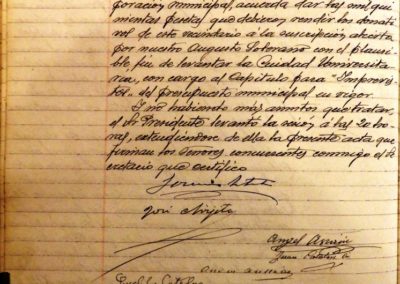 poración municipal, acuerda dar tres mil qui-
nientas pesetas que debieron rendir los donati-
vos de este vecindario a la suscripción abierta
por nuestro Augusto Soberano con el plausi-
ble fin de levantar la Ciudad Universita-
ria, con cargo al Capítulo para "Imprevis-
tos" del presupuesto municipal en vigor.
Y no habiendo más asuntos que tratar,
el Sr. Presidente levantó la sesión a las 20 ho-
ras, extendiéndose de ella la presente acta que
firman los Señores concurrentes conmigo el Se-
cretario que certifico.
José
Angel
Juan